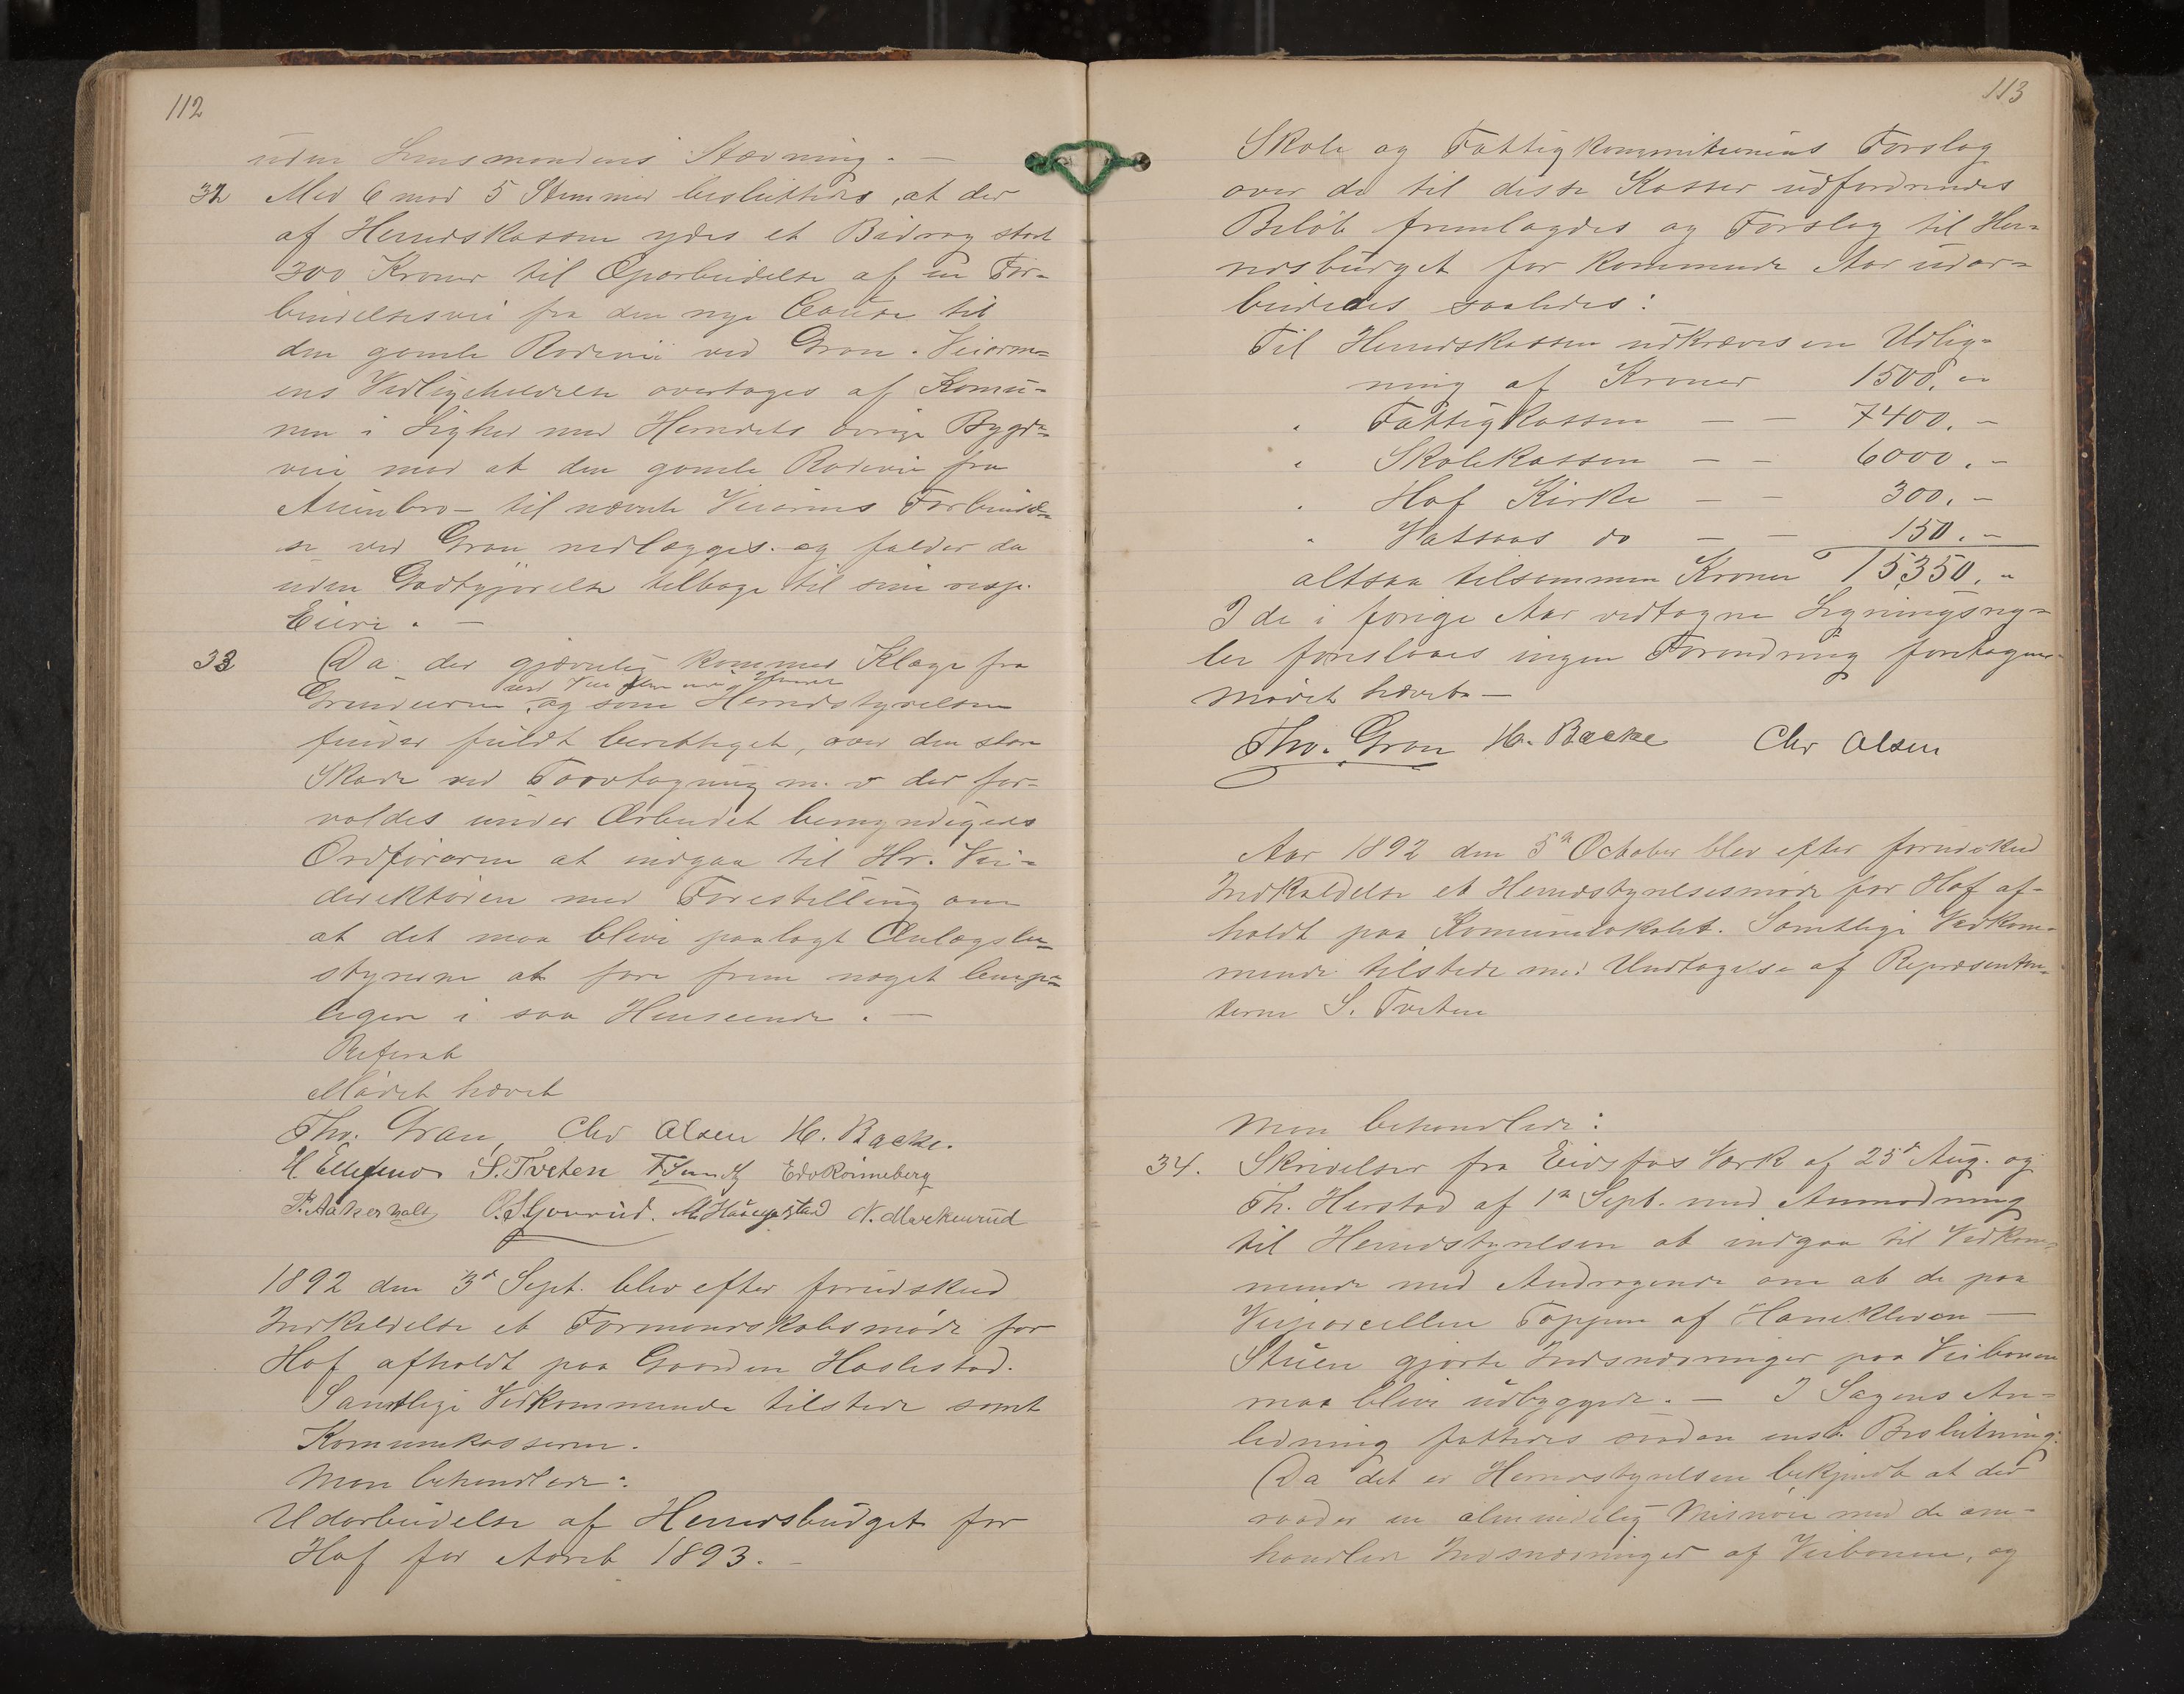 112
uden Lensmandens Stævning. —
32 Med 6 mod 5 Stemmer besluttedes, at der
af Herredskassen ydes et Bidrag stort
300 Kroner til Oparbeidelse af en For-
bindelsesvei fra den nye Chause til
den gamle Rodevei ved Gran. Veiarm-
ens Vedligeholdelse overtages af Komu-
nen i Lighed med Herredets øvrige Bygde-
veie mod at den gamle Rodevei fra
til nævnte Veiarms Forbindel-
se ved Gran nedlægges og falder da
uden Godtgjørelse tilbage til sine resp.
Eiere. —
33 Da der gjævnlig kommer Klage fra
Grundeierne, og som Herredstyrelsen
finder fuldt berettiget, over den store
Skade ved Torvtagning m. v der for-
voldes under Arbeidet bemyndigedes
Ordføreren at indgaa til Hr. Vei-
direktøren med Forestilling om
at det maa blive paalagt Anlægsbe-
styrerne at fare frem noget lempe-
ligere i saa Henseende. —
Referat
Mødet hævet
Thv. Gran, Chr Olsen H. Backe.
H. Ellefmo S. Tveten Edv Rönneberg
P. Aakerholt O. S. Gourrud. M. Haugestad N. Markerrud
1892 den 3d Sept. blev efter forudskeed
Indkaldelse et Formandskabsmøde for
Hof afholdt paa Gaarden Haslestad.
Samtlige Vedkommende tilstede samt
Komunekassereren.
Man behandlede:
Udarbeidelse af Herredsbudget for
Hof for Aaret 1893. —
113
Skole og Fattigkommitionens Forslag
over de til disse Kasser udfordrendes
Beløb fremlagdes og Forslag til Her-
redsbudget for kommende Aar udar-
beidedes saaledes:
Til Herredskassen udkræves en Udlig-
ning af Kroner 1500. „
„ Fattigkassen — — 7400. –
„ Skolekassen — — 6000. –
„ Hof Kirke — — 300. –
„ Vatsaas do — — 150. –
altsaa tilsammen Kroner 15350. „
I de i forige Aar vedtagne Ligningsreg-
ler foreslaaes ingen Forandring foretagen.
Mødet hævet —
Thv. Gran H. Backe Chr Olsen
Aar 1892 den 5te October blev efter forudskeed
Indkaldelse et Herredstyrelsesmøde for Hof af-
holdt paa Komunelokalet. Samtlige Vedkom-
mende tilstede med Undtagelse af Repræsentan-
terne S. Tveten
Man behandlede:
34. Skrivelser fra Eidsfos Værk af 25de Aug. og
Th. Herstad af 1ste Sept. med Anmodning
til Herredstyrelsen at indgaa til Vedkom-
mende med Andragende om at de paa
Veiparcellen Toppen af Hanekleven —
Stuen gjorte Indsnævringer paa Veibanen
maa blive udbyggede. — I Sagens An-
ledning fattedes saadan enst. Beslutning:
Da det er Herredstyrelsen bekjendt at der
raader en almindelig Misnøie med de om-
handlede Indsnævringer af Veibanen, og